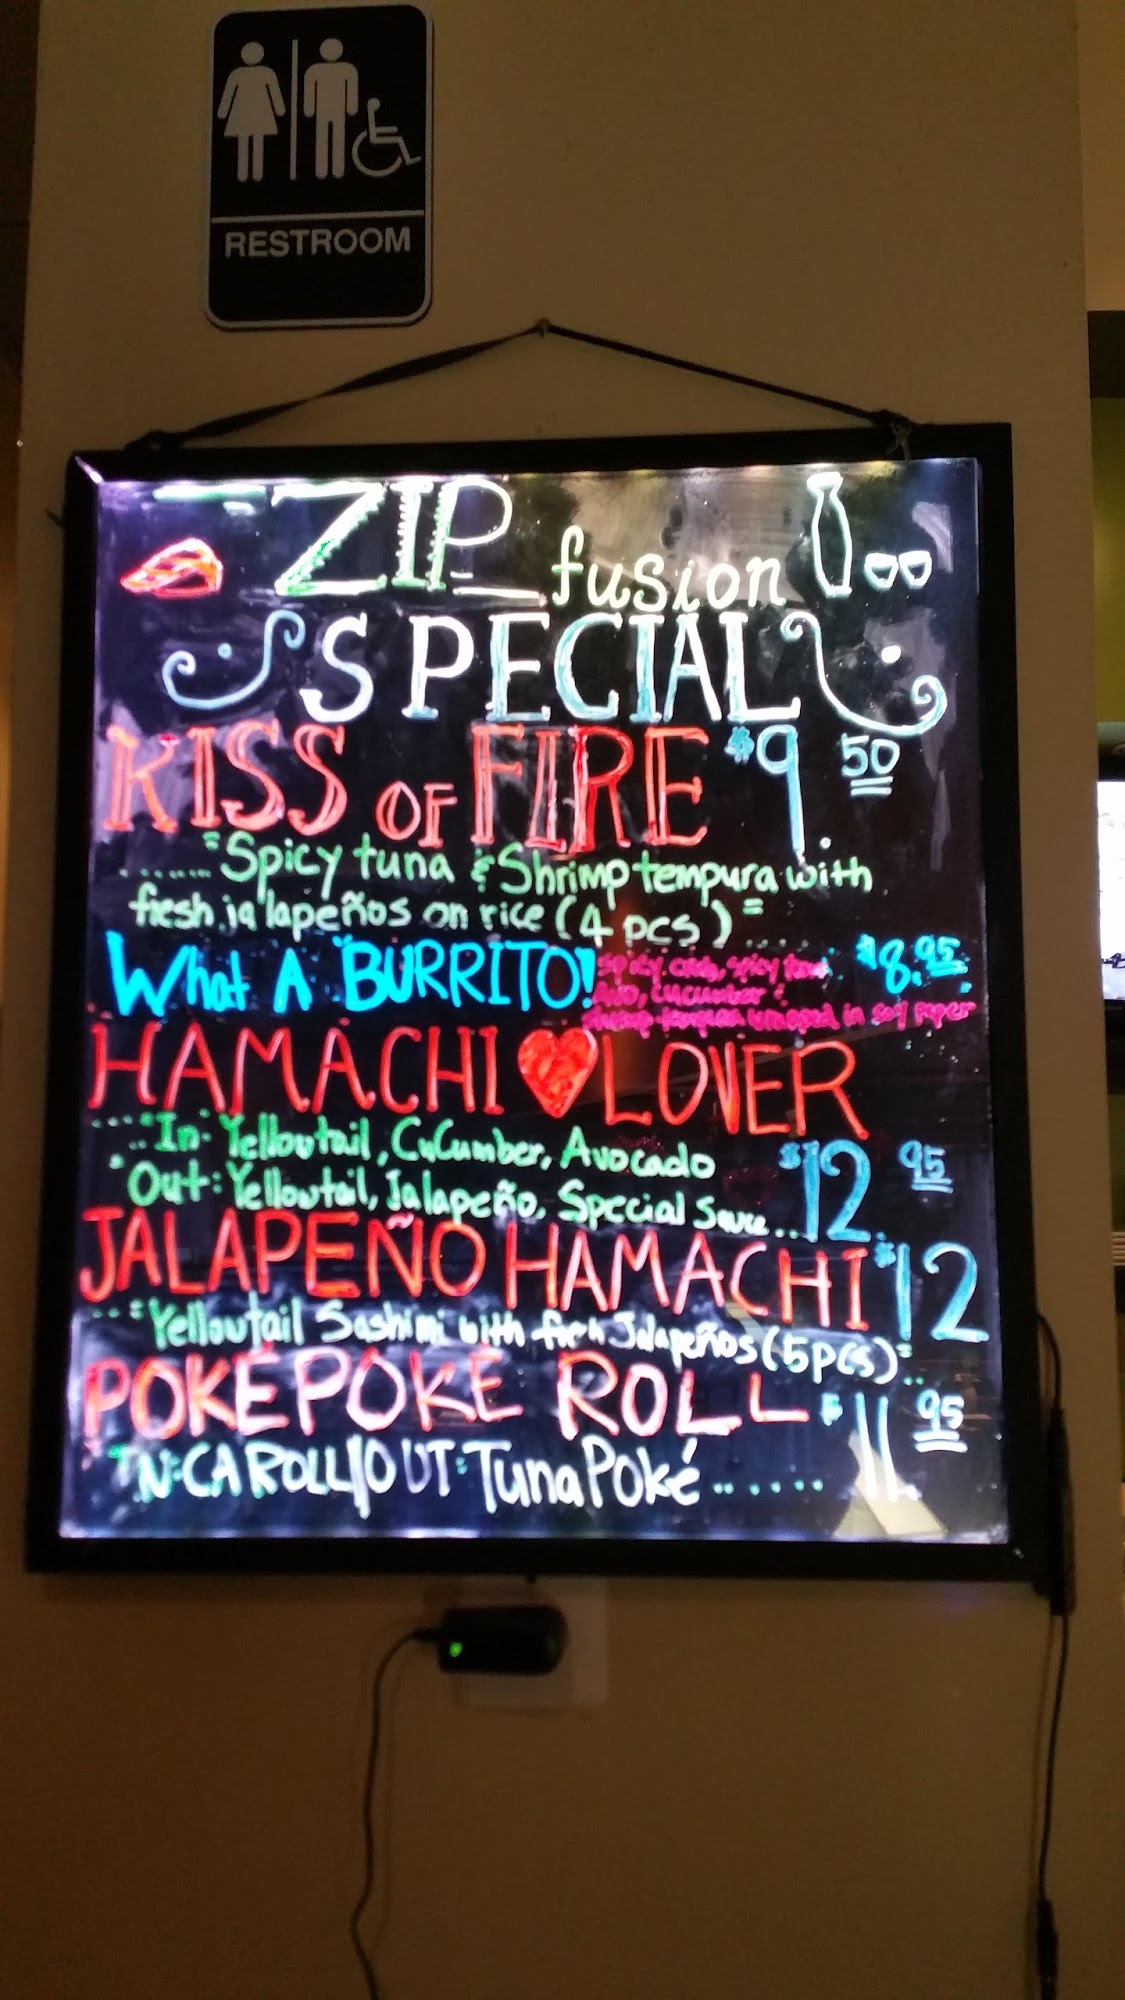 RESTROOM
ZIP fusion
SPECIAL
KISS OF FIRE $9.50
......."Spicy tuna & Shrimp tempura with
fresh jalapeños on rice (4 pcs)"....
What A BURRITO! $8.95
Spicy crab, spicy tuna
Avo, cucumber &
shrimp tempura wrapped in soy paper
HAMACHI ♥ LOVER
...."In: Yellowtail, CuCumber, Avocado
"Out: Yellowtail, Jalapeño, Special Sauce... $12.95
JALAPEÑO HAMACHI $12
..."Yellowtail Sashimi with fresh Jalapeños (5pcs)"..
POKÉPOKÉ ROLL $11.95
IN: CA ROLL//OUT: Tuna Poké......